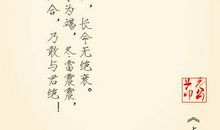 ，长命无绝衰。
为竭，冬雷震震，
合，乃敢与君绝！
《上